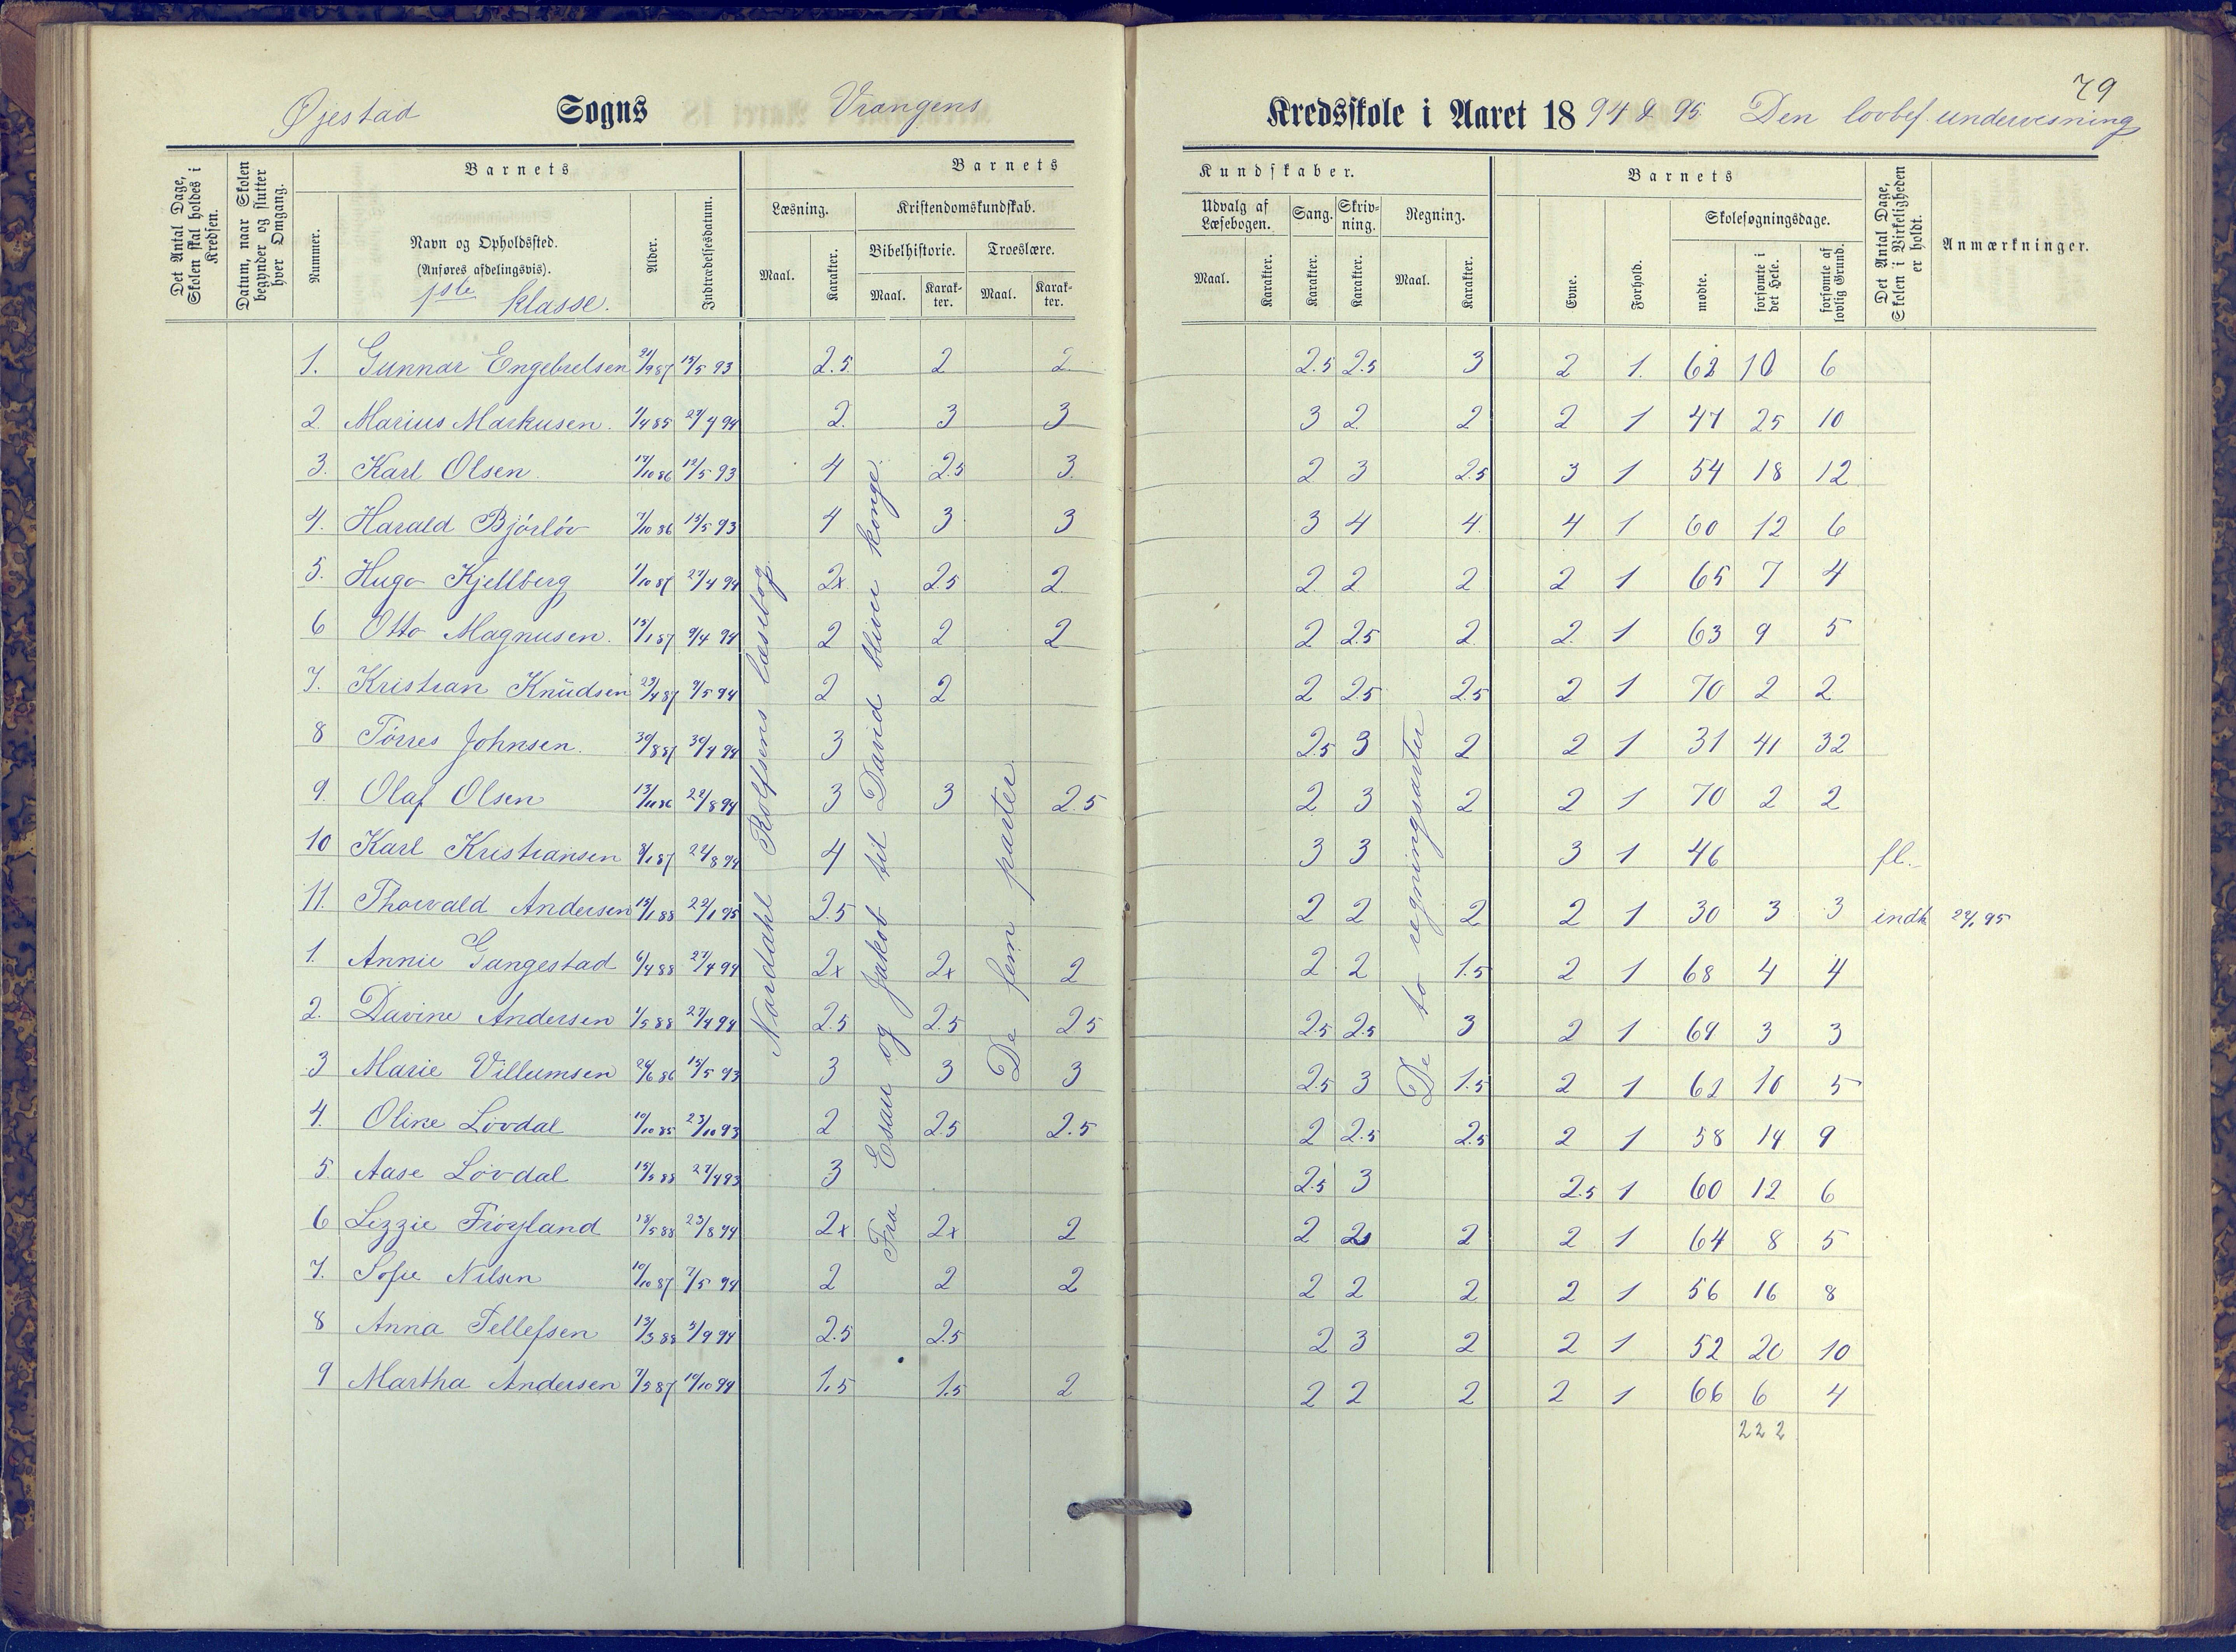 79
Øjestad Sogns Vrangens Kredsskole i Aaret 1894 & 95. Den lovbef. undervisning
Det Antal Dage, Skolen skal holdes i Kredsen.
Datum, naar Skolen begynder og slutter hver Omgang.
Barnets
Nummer.
Navn og Opholdssted.
(Anføres afdelingsvis).
1ste klasse.
Alder.
Indtrædelsesdatum.
Barnets Kundskaber.
Læsning.
Maal. Karakter.
Kristendomskundskab.
Bibelhistorie. Troeslære.
Maal. Karak-ter. Maal. Karak-ter.
Udvalg af Læsebogen.
Maal. Karakter.
Sang.
Karakter.
Skriv-ning.
Karakter.
Regning.
Maal. Karakter.
Barnets
Evne.
Forhold.
Skolesøgningsdage.
mødte.
forsømte i det Hele.
forsømte af lovlig Grund.
Det Antal Dage, Skolen i Virkeligheden er holdt.
Anmærkninger.
Nordahl Rolfsens læsebog
Fra Esau og Jakob til David bliver konge.
De fem parter
De to regningsarter
1. Gunnar Engebretsen 21/9 87 15/5 93 2.5 2 2 2.5 2.5 3 2 1. 62 10 6
2. Marius Markusen. 1/4 85 27/4 94 2. 3 3 3 2 2 2 1 47 25 10
3. Karl Olsen 14/10 86 15/5 93 4 2.5 3. 2 3 2.5 3 1 54 18 12
4. Harald Bjørløv 7/10 86 15/5 93 4 3 3 3 4 4 4 1 60 12 6
5. Hugo Kjellberg 1/10 87 27/4 94 2x 2.5 2 2 2 2 2 1 65 7 4
6 Otto Magnusen. 15/1 87 9/4 94 2 2 2 2 2.5 2 2 1 63 9 5
7. Kristian Knudsen 23/4 87 9/5 94 2 2 2 2.5 2.5 2 1 70 2 2
8 Tørres Johnsen. 30/8 87 30/4 94 3 2.5 3 2 2 1 31 41 32
9. Olaf Olsen 13/11 86 22/8 94 3 3 2.5 2 3 2 2 1 70 2 2
10 Karl Kristiansen 8/1 87 22/8 94 4 3 3 3 1 46 fl.
11. Thorvald Andersen 15/1 88 22/1 95 2.5 2 2 2 2 1 30 3 3 indk 22/1 95
1. Annie Gangestad 6/4 88 27/4 94 2x 2x 2 2 2 1.5 2 1 68 4 4
2. Davine Andersen 1/5 88 27/4 94 2.5 2.5 2.5 2.5 2.5 3 2 1 69 3 3
3 Marie Villumsen 24/6 86 15/5 93 3 3 3 2.5 3 1.5 2 1 62 10 5
4. Oline Løvdal 10/10 85 23/10 93 2 2.5 2.5 2 2.5 2.5 2 1 58 14 9
5. Aase Løvdal 15/5 88 27/4 93 3 2.5 3 2.5 1 60 12 6
6 Lizzie Frøyland 18/5 88 23/8 94 2x 2x 2 2 2 2 2 1 64 8 5
7. Sofie Nilsen 10/10 87 7/5 94 2 2 2 2 2 2 2 1 56 16 8
8 Anna Tellefsen 13/3 88 3/9 94 2.5 2.5 2 3 2 2 1 52 20 10
9 Martha Andersen 7/5 87 10/10 94 1.5 1.5 2 2 2 2 2 1 66 6 4
222